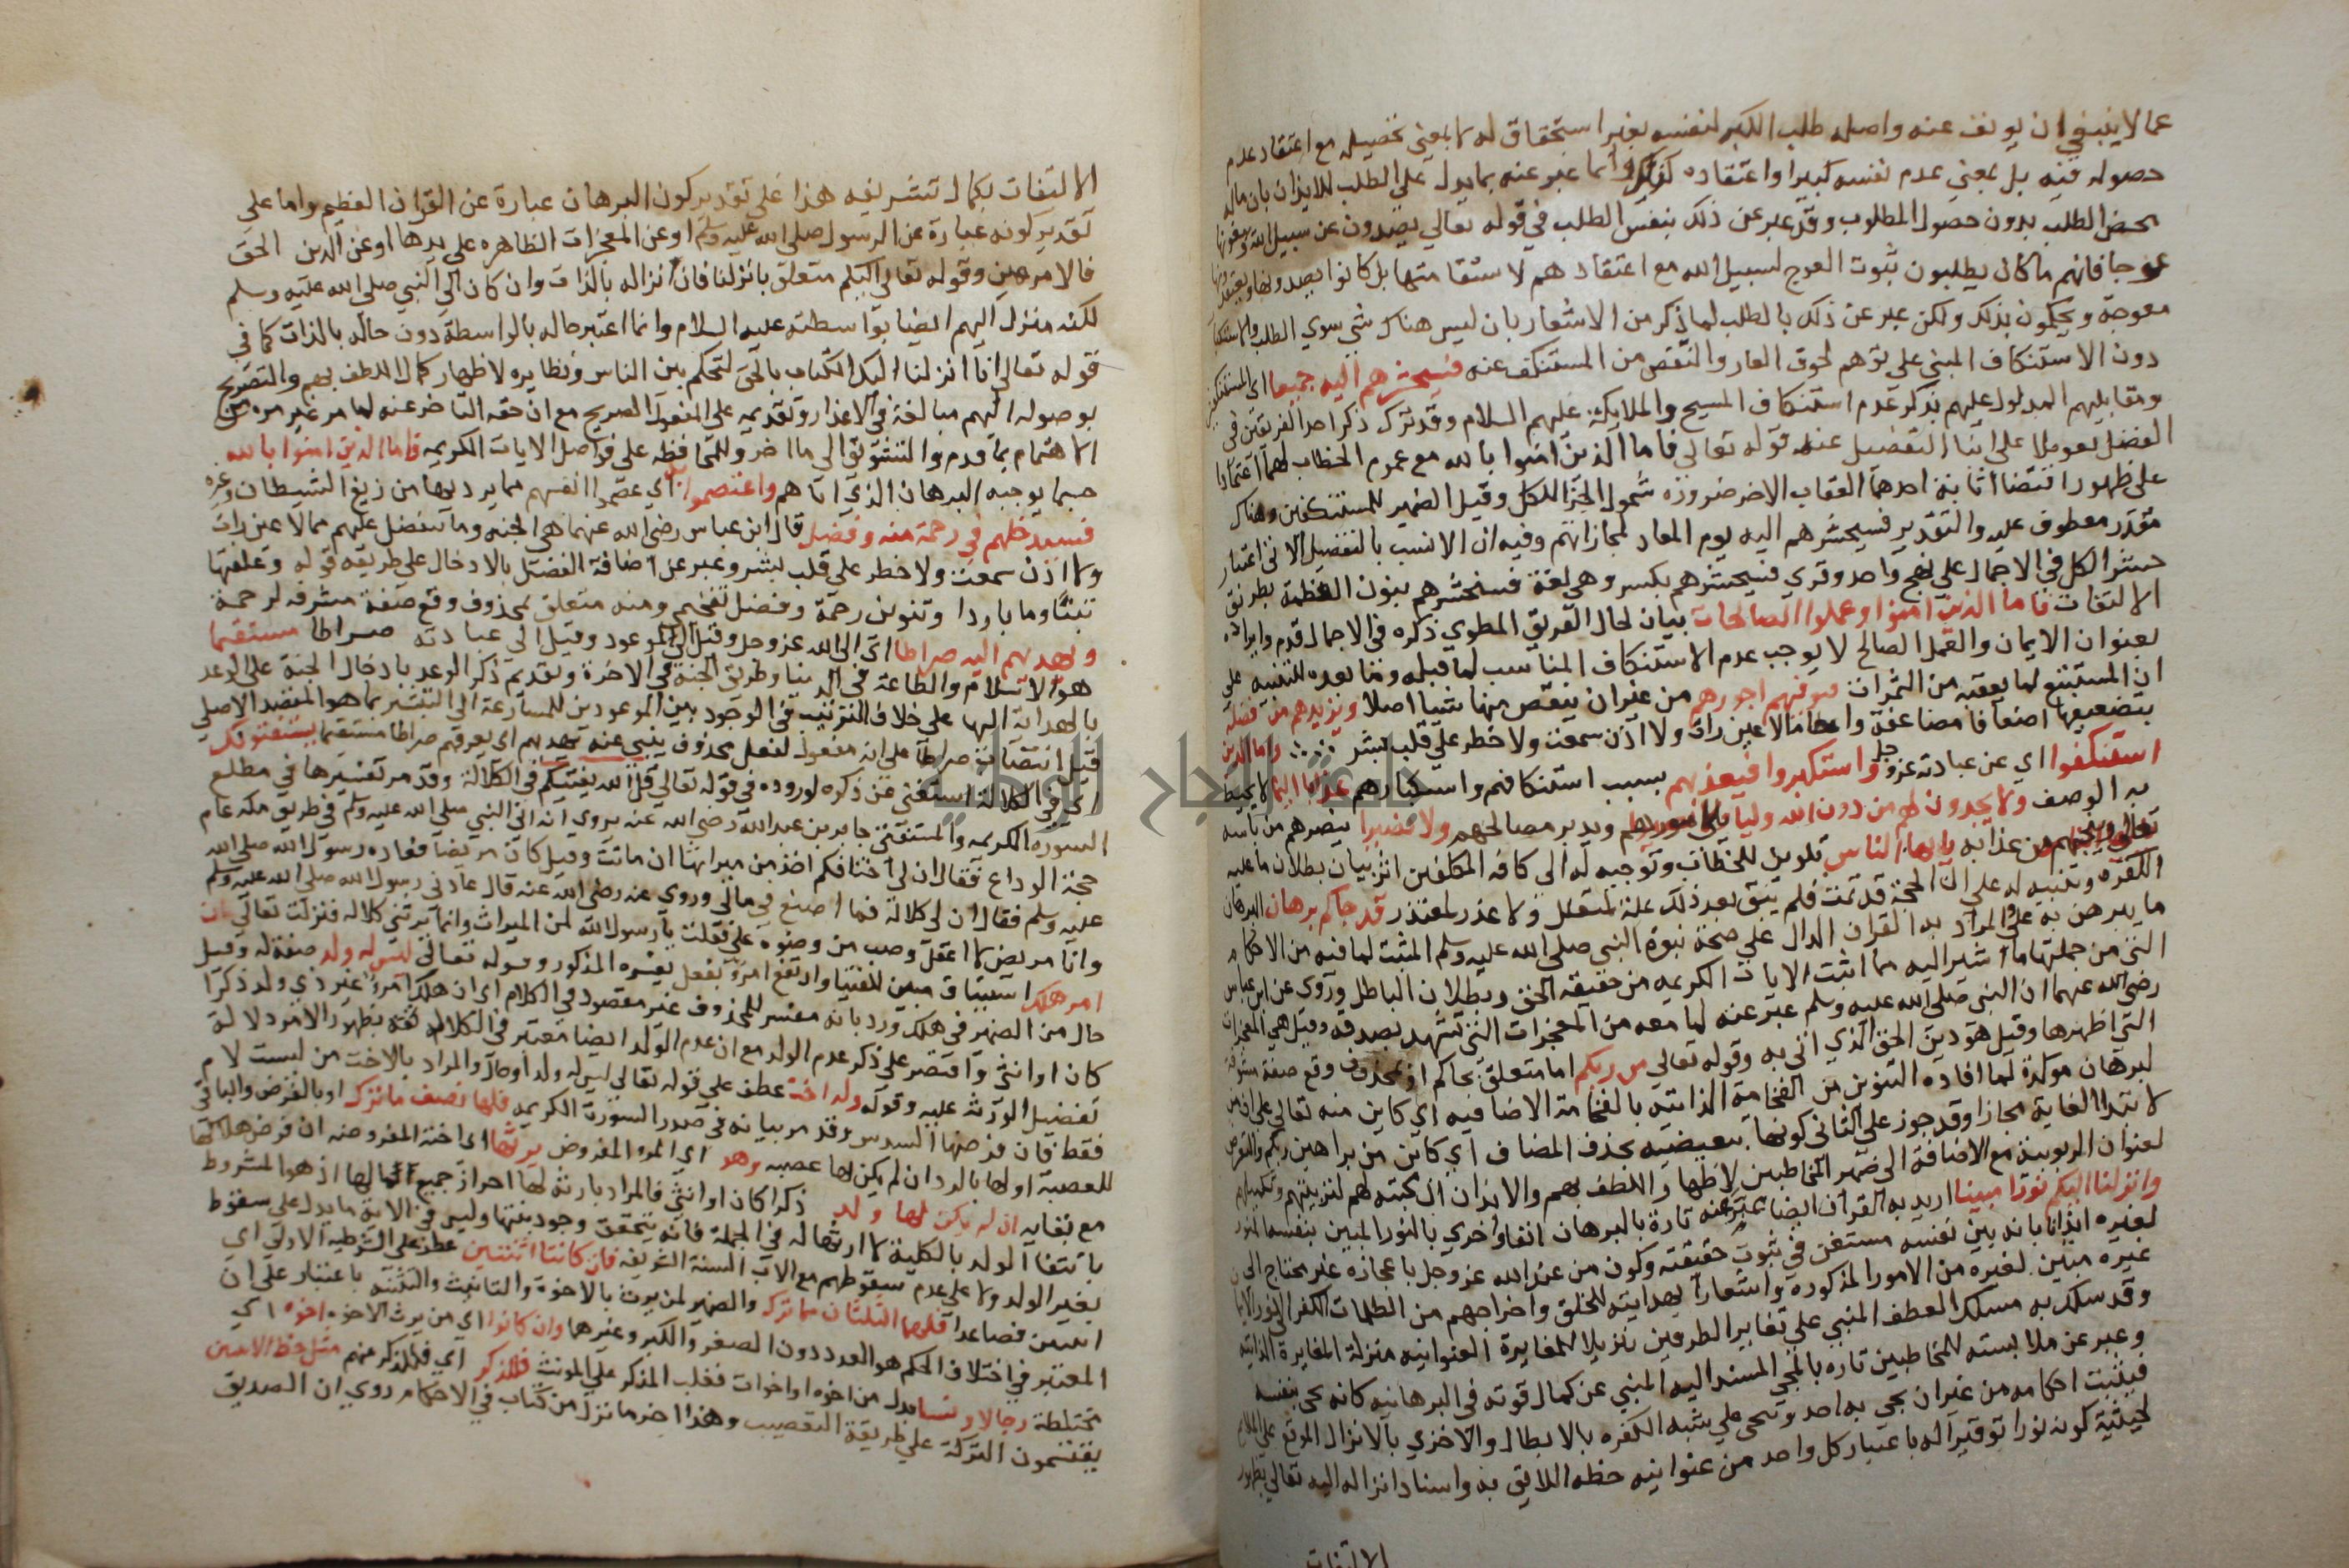 عما لا ينبغي ان يونف عنه واصله طلب الكبر لنفسه بغير استحقاق له لا بمعنى تحصيله مع اعتقاد عدم
حصوله فيه بل بمعنى عدم نفسه كبيرا واعتقاده كذلك وانما عبر عنه بما يدل على الطلب للايذان بان ماله
محض الطلب بدون حصول المطلوب وقد عبر عن ذلك بنفس الطلب في قوله تعالى يصدون عن سبيل الله ويبغونها
عوجا فانهم ما كانوا يطلبون ثبوت العوج لسبيل الله مع اعتقادهم لاستقامتها بل كانوا يعدونها ويعتقدونها
معوجة ويحكمون بذلك ولكن عبر عن ذلك بالطلب لما ذكر من الاشعار بان ليس هناك شي سوى الطلب والاستكبار
دون الاستنكاف المبني على توهم لحوق العار والنقص من المستنكف عنه فسيحشرهم اليه جميعا اى المستنكفين
ومقابليهم المدلول عليهم بذكر عدم استنكاف المسيح والملايكة عليهم السلام وقد ترك ذكر احد الفريقين في
المفصل تعويلا على انبا التفصيل عنه قوله تعالى فاما الذين امنوا بالله مع عموم الخطاب لهما اعتمادا
على ظهور اقتضا اثابة احدهما العقاب الاخر ضرورة شمول الجزا للكل وقيل الضمير للمستنكفين وهناك
مقدر معطوف عليه والتقدير فسيحشرهم اليه يوم المعاد لمجازاتهم وفيه ان الانسب بالتفصيل الاتى اعتبار
حشر الكل في الاجمال على نهج واحد وقري فسيحشرهم بكسر وهي لغة فسنحشرهم بنون العظمة بطريق
الالتفات فاما الذين امنوا وعملوا الصالحات بيان لحال الفريق المطوي ذكره في الاجمال قدم وايراده
بعنوان الايمان والعمل الصالح لا يوجب عدم الاستنكاف المناسب لما قبله وما بعده للتنبيه على
ان المستتبع لما يعقبه من الثمرات فيوفيهم اجورهم من غير ان ينقص منها شيا اصلا ويزيدهم من فضله
بتضعيفها اضعافا مضاعفة واعطا ما لا عين رات ولا اذن سمعت ولا خطر على قلب بشر واما الذين
استنكفوا اي عن عبادته عز وجل واستكبروا فيعذبهم بسبب استنكافهم واستكبارهم عذابا اليما لا يحيط
به الوصف ولا يجدون لهم من دون الله وليا يلي امورهم ويدبر مصالحهم ولا نصيرا ينصرهم من باسه
تعالى وينجيهم من عذابه يا ايها الناس تلوين للخطاب وتوجيه له الى كافة المكلفين اثر بيان بطلان ما عليه
الكفرة وتنبيه له على ان الحجة قد تمت فلم يبق بعد ذلك علة لمتعلل ولا عذر لمعتذر قد جاكم برهان البرهان
ما يبرهن به على المراد به القران الدال على صحة نبوة النبي صلى الله عليه وسلم المثبت لما فيه من الاحكام
التي من جملتها ما اشير اليه مما اثبت الايات الكريمه من حقيقة الحق وبطلان الباطل وروى عن ابن عباس
رضى الله عنهما ان النبي صلى الله عليه وسلم عبر عنه لما معه من المعجزات التي تشهد بصدقه وقيل هي المعجزات
التي اظهرها وقيل هو دين الحق الذي اتى به وقوله تعالى من ربكم اما متعلق بجاكم او بمحذوف وقع صفة مشرفة
لبرهان موكدة لما افاده التنوين من الفخامة الذاتيه بالفخامة الاضافيه اي كاين منه تعالى على ان من
لابتدا الغاية مجازا وقد جوز على الثاني كونها تبعيضيه بحذف المضاف اي كاين من براهين ربكم والتعرض
لعنوان الربوبية مع الاضافة الى ضمير المخاطبين لاظهار اللطف بهم والايذان ان مجيته لهم لتربيتهم وتكميلهم
وانزلنا اليكم نورا مبينا اريد به القران ايضا عبر عنه تارة بالبرهان انفا واخرى بالنور المبين بنفسه المنور
لغيره ايذانا بانه بين نفسه مستغن في ثبوت حقيقته وكون من عند الله عز وجل باعجازه غير محتاج الى
غيره مبين لغيره من الامور المذكورة واشعارا بهدايته للخلق واخراجهم من الظلمات الكفر الى نور الايمان
وقد سلك به مسلك العطف المبني على تغاير الطرفين تنزيلا للمغايرة العنوانيه منزلة المغايرة الذاتيه
وعبر عن ملابسته للمخاطبين تاره بالمجي المسند اليه المبني عن كمال قوته في البرهانيه كانه يجى بنفسه
فيثبت احكامه من غير ان يجى به احد وتجى على شبه الكفره بالابطال والاخرى بالانزال الموقع عليه الملايم
لحيثية كونه نورا توقيرا له باعتبار كل واحد من عنوانيه حظه اللايق به واسناد انزاله اليه تعالى بطريق
الالتفات
الالتفات بكمال تشريفه هذا على تقدير كون البرهان عبارة عن القران العظيم واما على
تقدير كونه عبارة عن الرسول صلى الله عليه وسلم او عن المعجزات الظاهره على يدها او عن الدين الحق
فالامر هين وقوله تعالى اليكم متعلق بانزلنا فان انزاله بالذات وان كان الى النبي صلى الله عليه وسلم
لكنه منزل اليهم ايضا بواسطته عليه السلام وانما اعتبر حاله بالواسطة دون حاله بالذات كما في
قوله تعالى انا انزلنا اليك الكتاب بالحق لتحكم بين الناس ونظايره لاظهار كمال اللطف بهم والتصريح
بوصوله اليهم مبالغة في الاعذار وتقديمه على المفعول الصريح مع ان حقه التاخر عنه لما مر غير مره من
الاهتمام بما قدم والتشويق الى ما اخر وللمحافظه على فواصل الايات الكريمه فاما الذين امنوا بالله
حسبما يوجبه البرهان الذي اتاهم واعتصموا به اي عصموا انفسهم مما يرديها من زيغ الشيطان وغيره
فسيدخلهم في رحمة منه وفضل قال ابن عباس رضى الله عنهما هي الجنه وما يتفضل عليهم مما لا عين رات
ولا اذن سمعت ولا خطر على قلب بشر وعبر عن اضافة الفضل بالادخال على طريقة قوله وعلفتها
تبنا وما باردا وتنوين رحمة وفضل تفخيم ومنه متعلق بمحذوف وقع صفة مشرفه لرحمة
ويهديهم اليه صراطا اى الى الله عز وجل وقيل الى الموعود وقيل الى عبادته صراطا مستقيما
هو الاسلام والطاعة في الدنيا وطريق الجنة في الاخرة وتقديم ذكر الوعد بادخال الجنة على الوعد
بالهداية اليها على خلاف الترتيب في الوجود بين الموعودين للمسارعة الى التبشير بما هو المقصد الاصلي
قيل انتصاب صراطا على انه مفعول لفعل محذوف ينبي عنه يهديهم اى يعرفهم صراطا مستقيما يستفتونك
اى في الكلالة استغني عن ذكره لوروده في قوله تعالى قل الله يفتيكم في الكلالة وقد مر تفسيرها في مطلع
السورة الكريمه والمستفتي جابر بن عبد الله رضى الله عنه يروى انه اتى النبي صلى الله عليه وسلم في طريق مكه عام
حجة الوداع فقال ان لي اختا فكم اخذ من ميراثها ان ماتت وقيل كان مريضا فعاده رسول الله صلى الله
عليه وسلم فقال ان لي كلالة فما اصنع في مالي وروى عنه رضى الله عنه قال عادني رسول الله صلى الله عليه وسلم
وانا مريض لا اعقل وصب من وضوه على فقلت يا رسول الله لمن الميراث وانما يرثني كلاله فنزلت تعالى ان
امر هلك استيناف مبين للفتيا وارتفع امرو بفعل يفسره المذكور وقوله تعالى ليس له ولد صفة له وقيل
حال من الضمير في هلك ورد بانه مفسر للمحذوف غير مقصود في الكلام اى ان هلك امرؤ غير ذي ولد ذكرا
كان او انثى واقتصر على ذكر عدم الولد مع ان عدم الوالد ايضا معتبر في الكلالة ثقة بظهور الامر ودلالة
تفضيل الورثه عليه وقوله وله اخت عطف على قوله تعالى ليس له ولد او حال والمراد بالاخت من ليست لام
فقط فان فرضها السدس وقد مر بيانه في صدر السورة الكريمه فلها نصف ما ترك او بالفرض والباقي
للعصبة او لها بالرد ان لم يكن لها عصبه وهو اي المرء المفروض يرثها اى اخته المفروضه ان فرض هلاكها
مع بقايه ان لم يكن لها ولد ذكرا كان او انثى فالمراد بارثه لها احراز جميع مالها اذ هو المشروط
بانتفا الولد بالكلية لا ارثها له في الجملة فانه يتحقق وجود بنتها وليس في الاية ما يدل على سقوط
بغير الولد ولا على عدم سقوطهم مع الاب السنة الشريفه فان كانتا اثنتين عطف على الشرطية الاولى اى
اثنتين فصاعدا فلهما الثلثان مما ترك والضمير لمن يرث بالاخوة والتانيث والتثنيه باعتبار على ان
المعتبر في اختلاف الحكم هو العدد دون الصغر والكبر وغيرها وان كانوا اى من يرث الاخوه اخوه اى
مختلطة رجالا ونسا بدل من اخوه او اخوات فغلب المذكر على المونث فللذكر اى فللذكر منهم مثل حظ الانثيين
يقتسمون التركة على طريقة التعصيب وهذا اخر ما نزل من كتاب في الاحكام روى ان الصديق